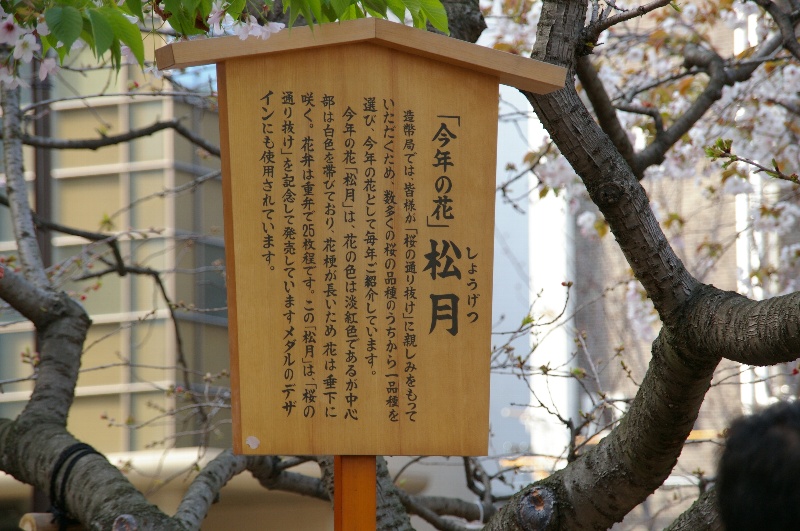 「今年の花」松月
しょうげつ
造幣局では、皆様が「桜の通り抜け」に親しみをもって
いただくため、数多くの桜の品種のうちから一品種を
選び、今年の花として毎年ご紹介しています。
今年の花「松月」は、花の色は淡紅色であるが中心
部は白色を帯びており、花梗が長いため花は垂下に
咲く。花弁は重弁で25枚程です。この「松月」は、「桜の
通り抜け」を記念して発売していますメダルのデザ
インにも使用されています。